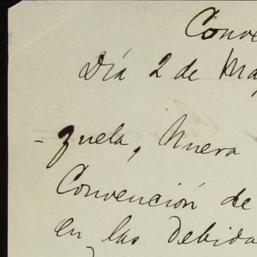 Conve
Día 2 de Ma
- zuela, Nueva
Convención de
en las debida